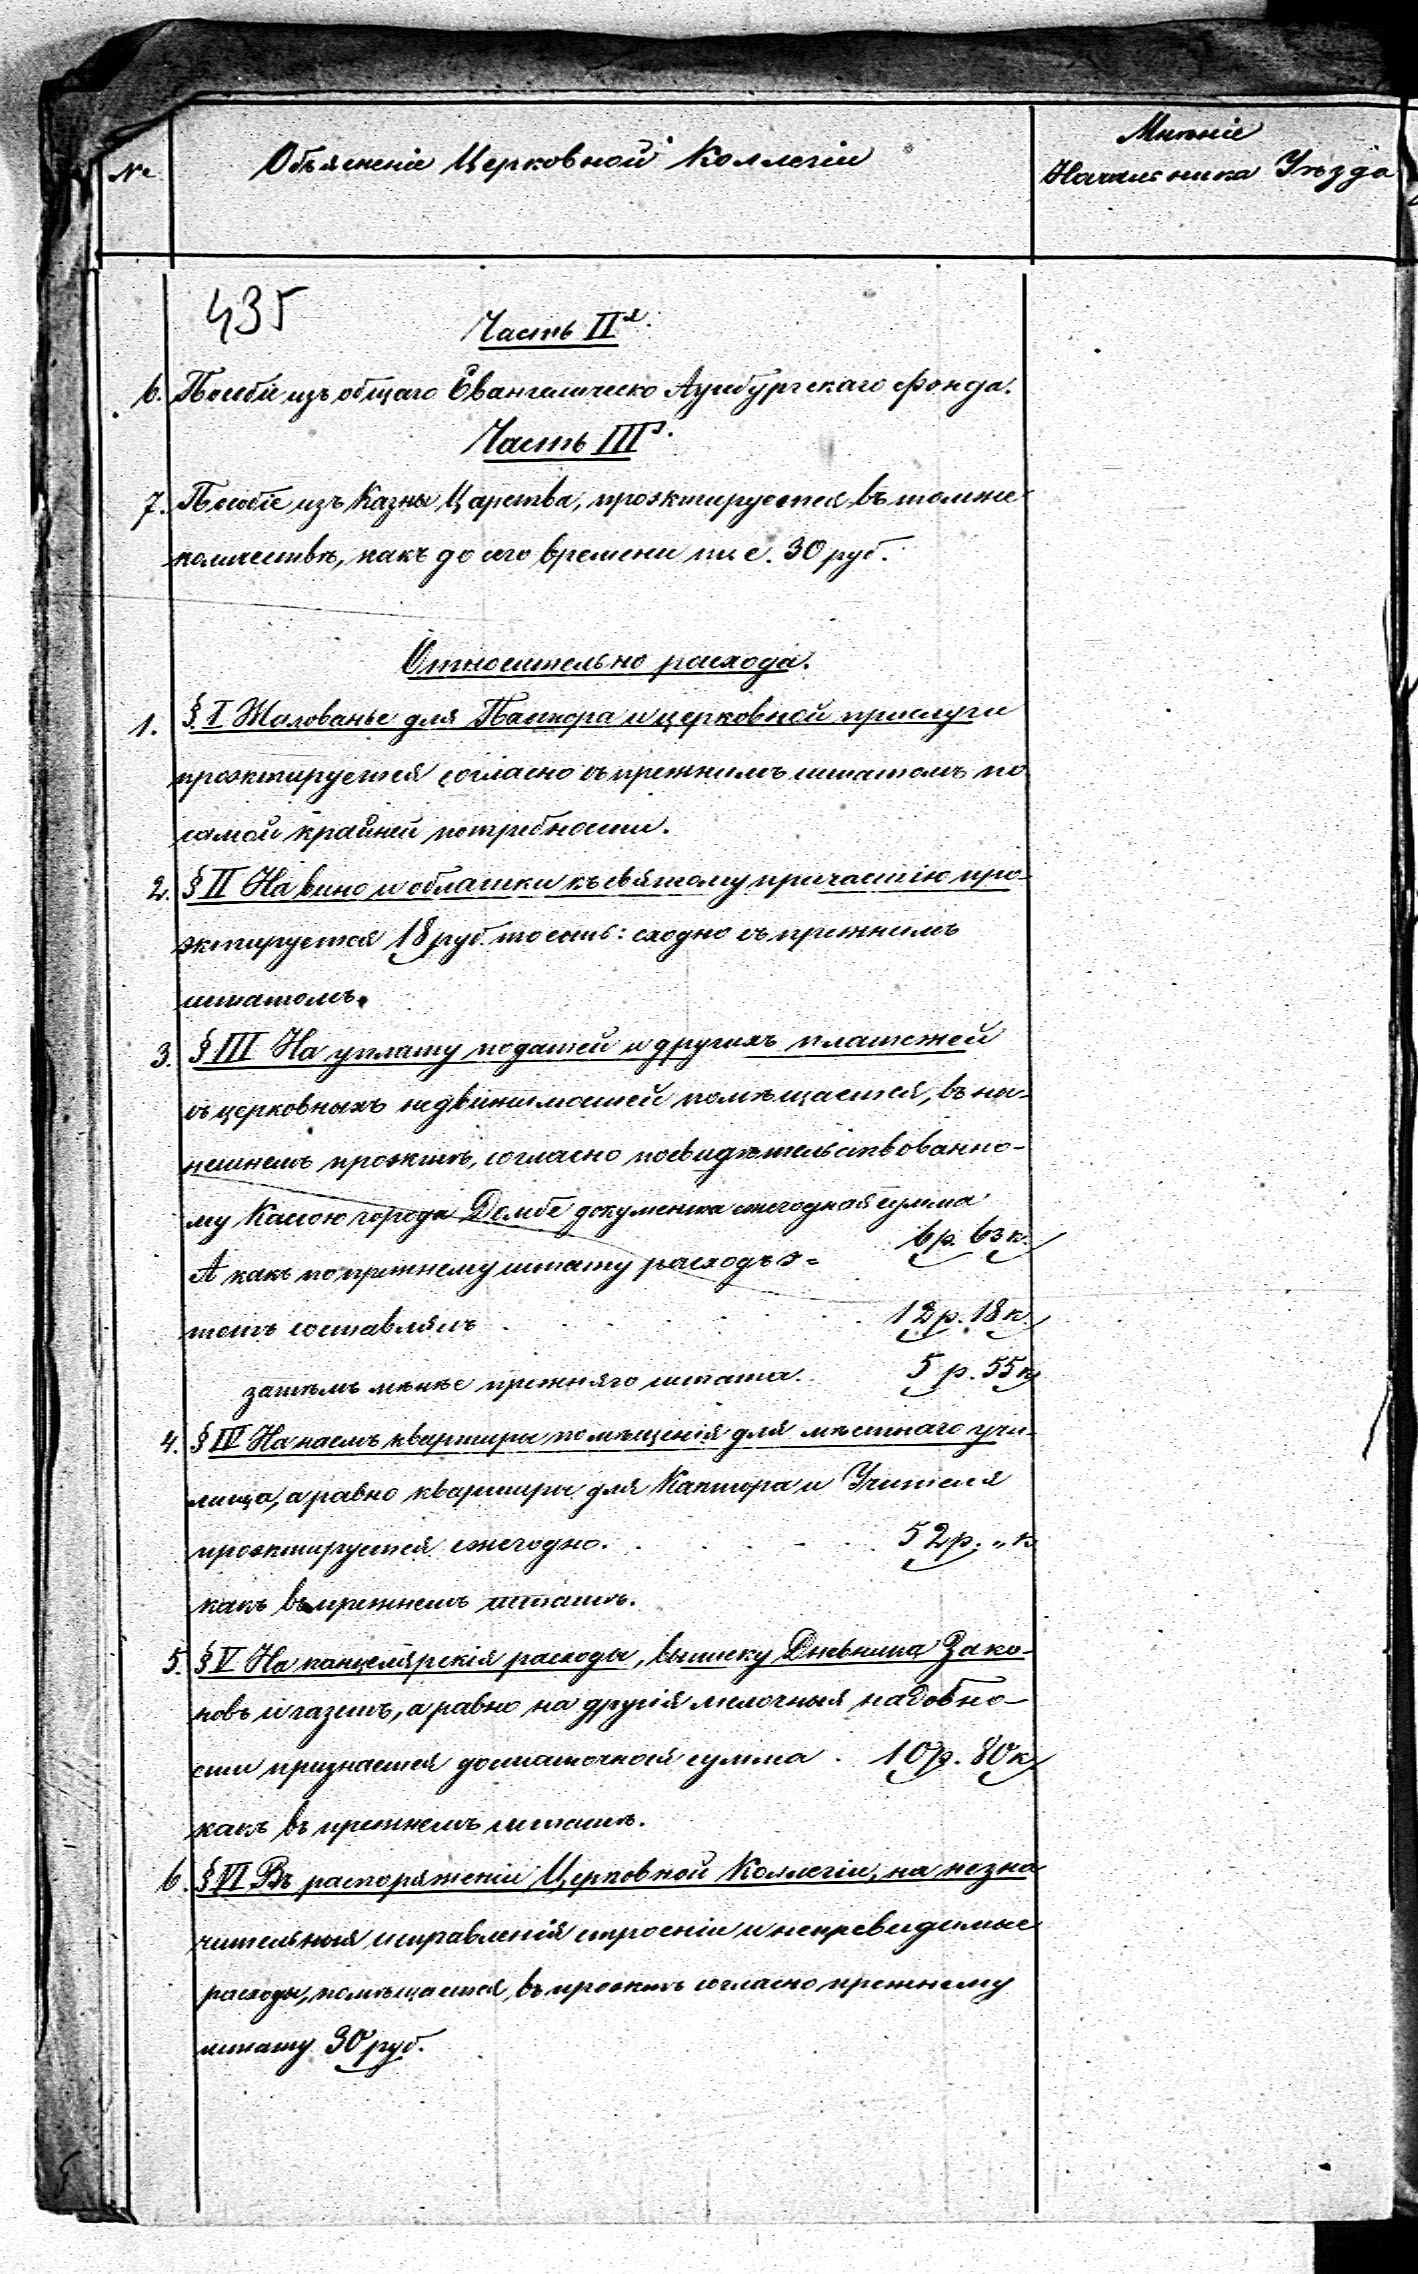 №
Объясненіе Церковной Коллегіи
Мнѣніе
Начальника Уѣзда
435
Часть IIя.
6. Пособіе изъ общаго Евангелическо Аугсбургскаго Фонда.
Часть IIIя.
7. Пособіе изъ Казны Царства, проэктируется въ томже
количествѣ, какъ до сего времени т. е. 30 руб.
Относительно расхода.
1. § I Жалованье для Пастора и церковной прислуги
проэктируется согласно съ прежнимъ штатомъ по
самой крайней потребности.
2. § II На вино и облатки къ святому причастію про-
эктируется 18 руб. то есть: сходно съ прежнимъ
штатомъ.
3. § III На уплату податей и другихъ платежей
съ церковныхъ недвижимостей помѣщается, въ ны-
нешнемъ проэктѣ, согласно посвидѣтельствованно-
му Кассою города Домбе документа ежегодная сумма
6 р. 63 к.
А какъ по прежнему штату расходъ э-
тотъ составлялъ . . . . . . 12 р. 18 к.
затѣмъ менѣе прежняго штата. 5 р. 55 к.
4. § IV На наемъ квартиры помѣщенія для мѣстнаго учи-
лища, а равно квартиры для Кантора и Учителя
проэктируется ежегодно. . . . . 52 р. „ к.
какъ въ прежнемъ штатѣ.
5. § V На канцелярскія расходы, выписку Дневника Зако-
новъ и газетъ, а равно на другія мелочныя надобно-
сти признается достаточной сумма . 10 р. 80 к.
какъ въ прежнемъ штатѣ.
6. § VI Въ распоряженіи Церковной Коллегіи, на незна-
чительныя исправленія строеніи и непревидимые
расходы, помѣщается въ проэктѣ согласно прежнему
штату 30 руб.